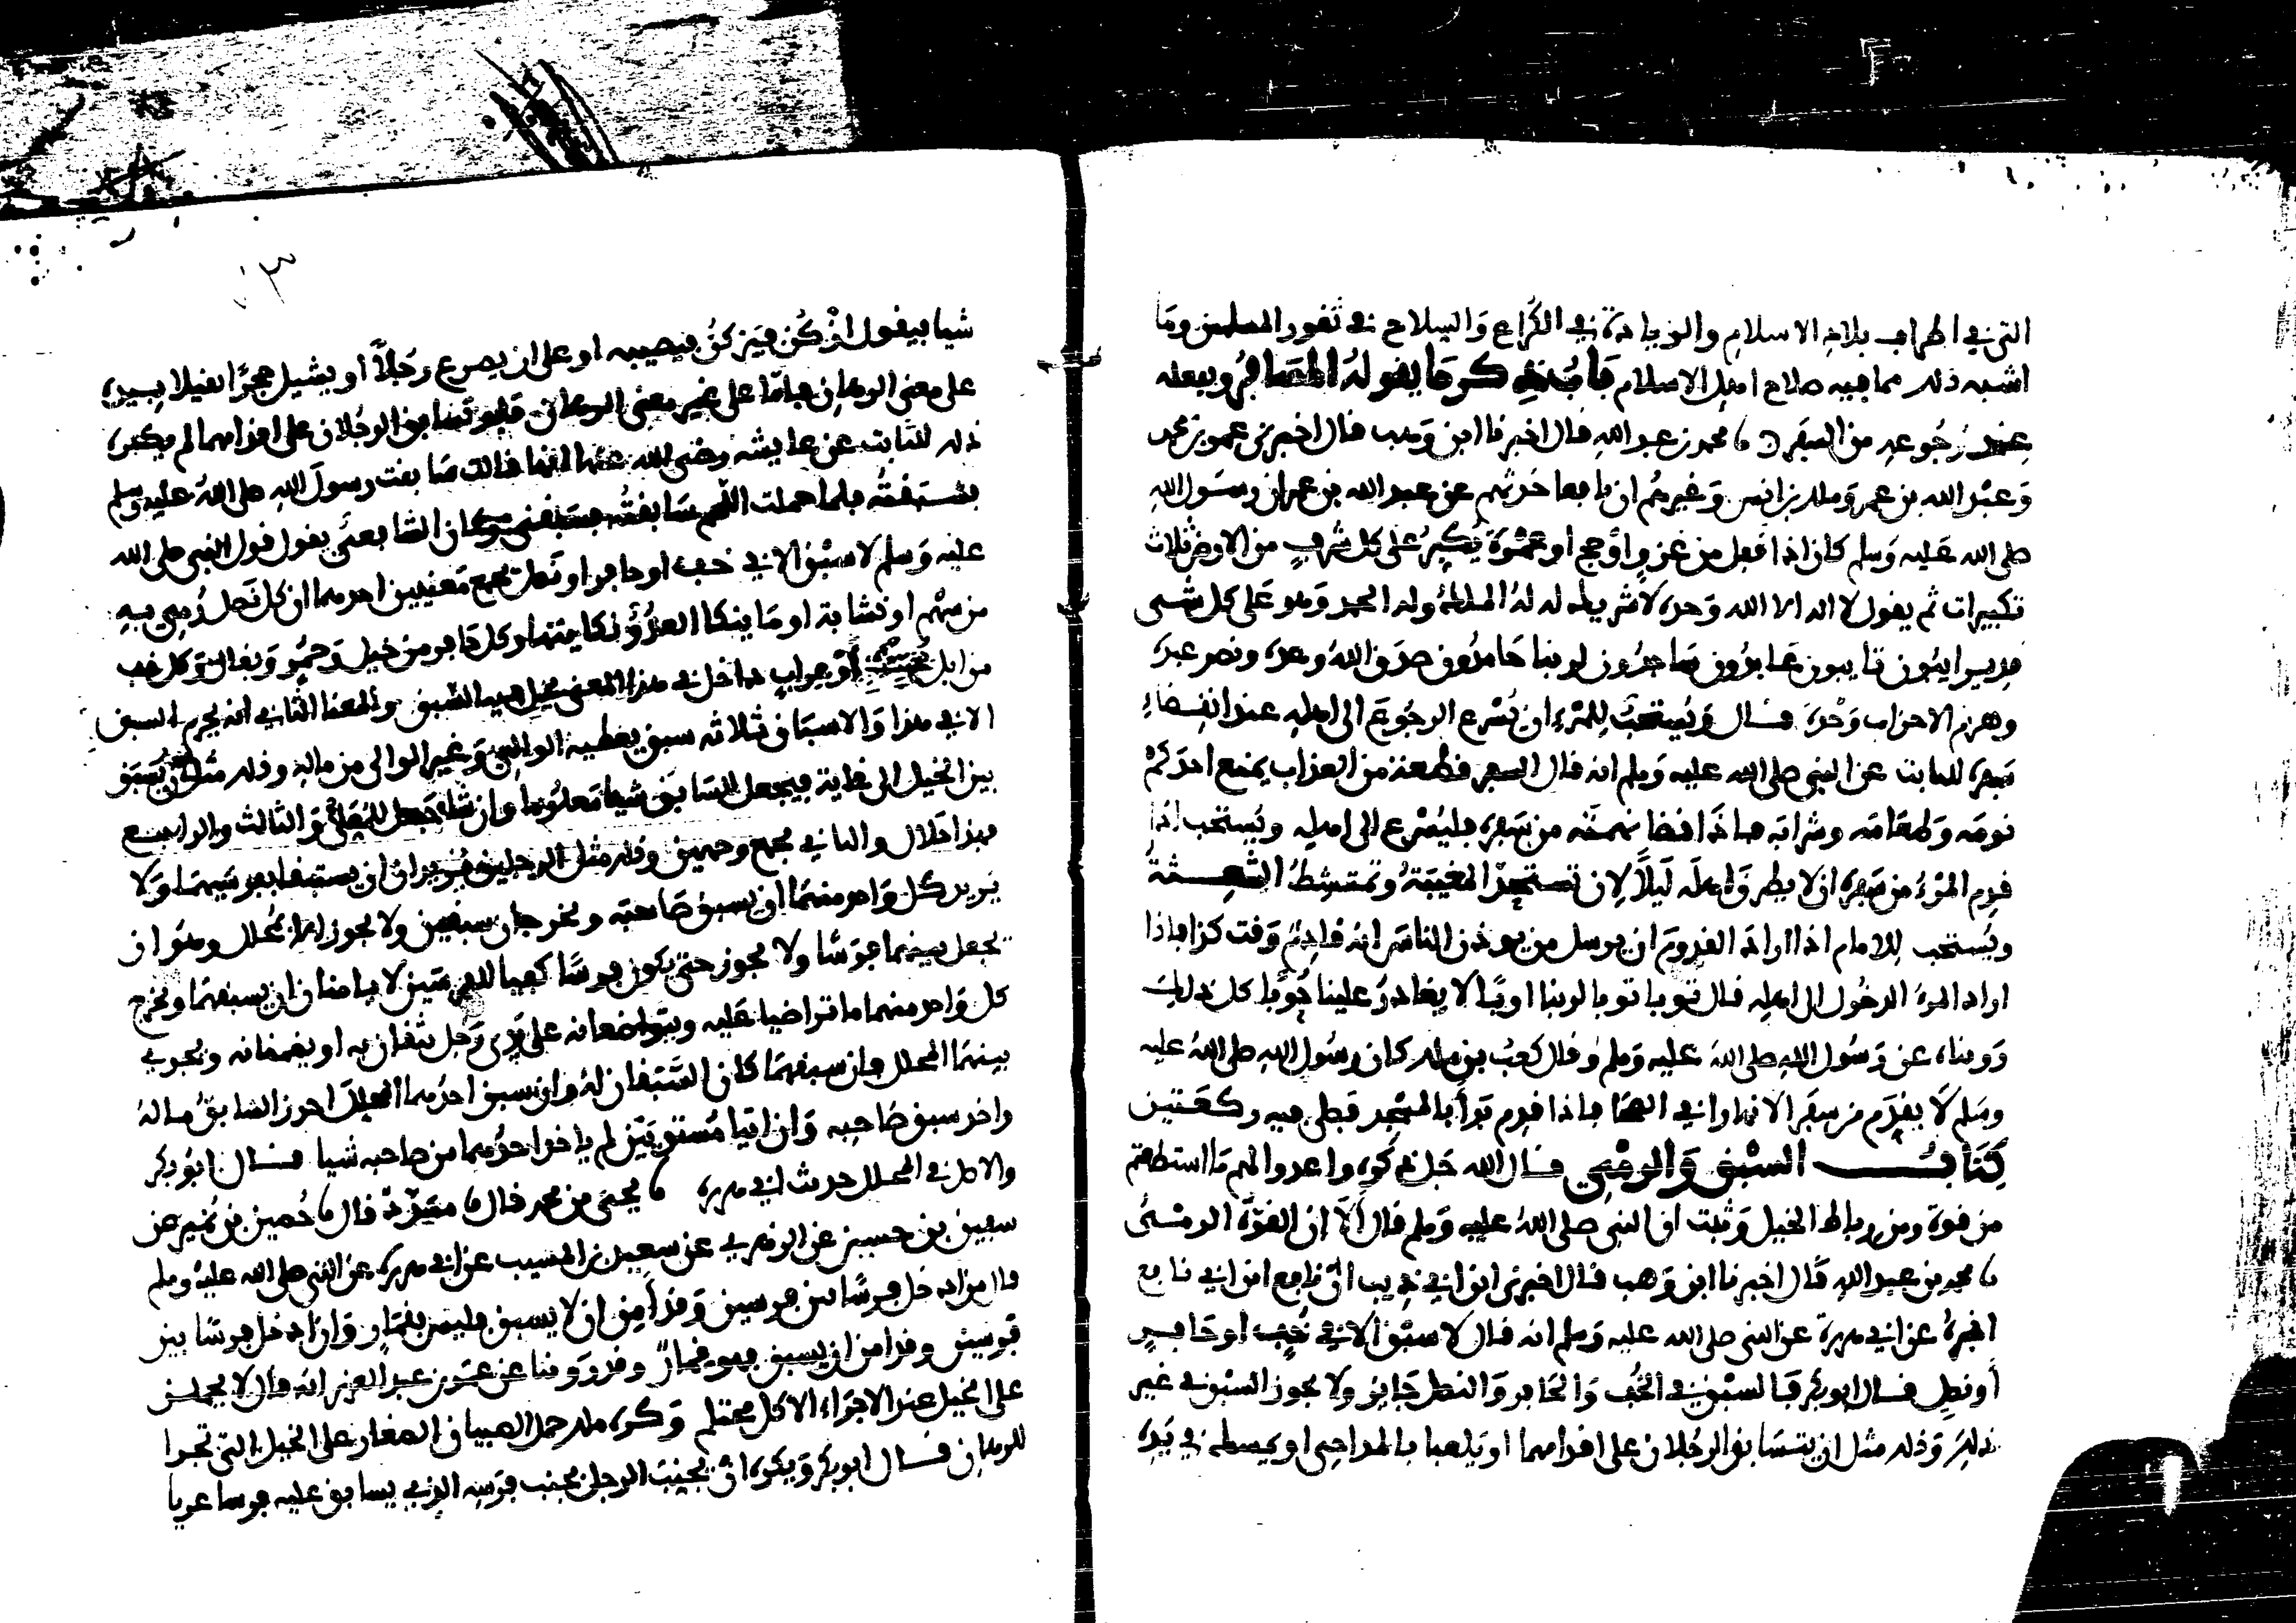 التي في اطراف بلاد الاسلام والزيادة في الكراع والسلاح في ثغور المسلمين وما
اشبه ذلك مما فيه صلاح اهل الاسلام باب ذكر ما يقوله المسافر ويفعله
عند رجوعه من السفر نا محمد بن عبد الله قال اخبرنا ابن وهب قال اخبرني عمر بن محمد
وعبد الله بن عمر وملك بن انس وغيرهم ان نافعا حدثهم عن عبد الله بن عمر ان رسول الله
صلى الله عليه وسلم كان اذا قفل من غزو او حج او عمرة يكبر على كل شرف من الارض ثلاث
تكبيرات ثم يقول لا اله الا الله وحده لا شريك له له الملك وله الحمد وهو على كل شى
قدير ايبون تايبون عابدون ساجدون لربنا حامدون صدق الله وعده ونصر عبده
وهزم الاحزاب وحده قال ويستحب للمرء ان يسرع الرجوع الى اهله عند انقضاء
سفره للثابت عن النبي صلى الله عليه وسلم انه قال السفر قطعة من العذاب يمنع احدكم
نومه وطعامه وشرابه فاذا قضا نهمته من سفره فليسرع الى اهله ويستحب اذا
قدم المرء من سفره ان لا يطرق اهله ليلا لان تستحد المغيبة وتمتشط الشعثة
ويستحب للامام اذا اراد القدوم ان يرسل من يوذن الناس انه قادم وقت كذا فاذا
اراد المرء الدخول الى اهله قال توبا توبا لربنا اوبا لا يغادر علينا حوبا كل ذلك
روينا عن رسول الله صلى الله عليه وسلم وقال كعب بن ملك كان رسول الله صلى الله عليه
وسلم لا يقدم من سفر الا نهارا في الضحا فاذا قدم بدأ بالمسجد فصلى فيه ركعتين
كتاب السبق والرمي قال الله جل ذكره واعدوا لهم ما استطعتم
من قوة ومن رباط الخيل وثبت ان النبي صلى الله عليه وسلم قال ألا ان القوة الرمى
نا محمد بن عبد الله قال اخبرنا ابن وهب قال اخبرني ابن ابي ذيب ان نافع ابن ابي نافع
اخبره عن ابي هريرة عن النبي صلى الله عليه وسلم انه قال لا سبق الا في خف او حافر
أو نصل قال ابو بكر فالسبق في الخف والحافر والنصل جايز ولا يجوز السبق في غير
ذلك وذلك مثل ان يتسابق الرجلان على اقدامهما او يلعبا بالمداحي او يمسك في يده
شيا فيقول ازكن فيزكن فيصيبه او على ان يصرع رجلا او يشيل حجرا ثقيلا بيده
على معنى الرهان فاما على غير معنى الرهان فلو تسابق الرجلان على اقدامهما لم يكره
ذلك للثابت عن عايشه رضى الله عنها انها قالت سابقت رسول الله صلى الله عليه وسلم
فسبقته فلما حملت اللحم سابقته فسبقني وكان الشافعي يقول قول النبي صلى الله
عليه وسلم لا سبق الا في خف او حافر او نصل يجمع معنيين احدهما ان كل نصل رمي به
من سهم او نشابة او ما ينكا العدو نكايتهما وكل حافر من خيل وحمر وبغال وكل خف
من ابل بخت أو عراب داخل في هذا المعنى يحل فيه السبق والمعنا الثاني انه يحرم السبق
الا في هذا والاسباق ثلاثه سبق يعطيه الوالي وغير الوالي من ماله وذلك مثل ان يسبق
بين الخيل الى غاية فيجعل للسابق شيا معلوما وان شا جعل للمصلي والثالث والرابع
فهذا حلال والثاني يجمع وجهين وذلك مثل الرجلين يريدان ان يستبقا بفرسيهما ولا
يريد كل واحد منهما ان يسبق صاحبه ويخرجان سبقين ولا يجوز الا بمحلل وهو ان
تجعل بينهما فرسا ولا يجوز حتى يكون فرسا كفيا للفرسين لا يامنان ان يسبقهما ويخرج
كل واحد منهما ما تراضيا عليه ويتواضعانه على يدي رجل يثقان به او يضمنانه ويجري
بينهما المحلل فان سبقهما كان السبقان له وان سبق احدهما المحلل احرز السابق ماله
واخذ سبق صاحبه وان اتيا مستويين لم ياخذ احدهما من صاحبه شيا قال ابو بكر
والاصل في المحلل حديث ابي هريرة نا يحيى بن محمد قال نا مسدد قال نا حصين بن نمير عن
سفين بن حسين عن الزهري عن سعيد بن المسيب عن ابي هريرة عن النبي صلى الله عليه وسلم
قال من ادخل فرسا بين فرسين وقد أمن ان لا يسبق فليس بقمار وان ادخل فرسا بين
فرسين وقد امن ان يسبق فهو قمار وقد روينا عن عمر بن عبد العزيز انه قال لا يحملن
على الخيل عند الاجراء الا كل محتلم وكره ملك حمل الصبيان الصغار على الخيل التي تجرا
للرهان قال ابو بكر ويكره ان يجنب الرجل بجنب فرسه الذي يسابق عليه فرسا عريا